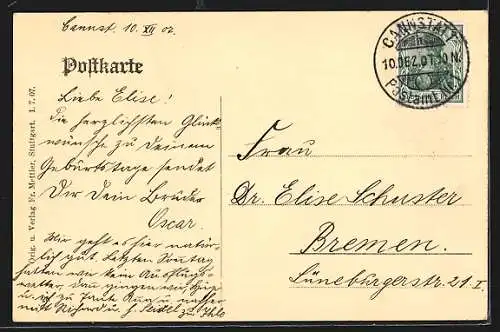 Cannst. 10. XII 07.
Postkarte
Liebe Elise!
Die herzlichsten Glück-
wünsche zu Deinem
Geburtstage sendet
Dir Dein Bruder
Oscar.
Wir geht es hier natür-
lich gut. Letzten Sonntag
hatten wir kein Ausflugs-
wetter, da gingen wir,
u. ich zu Tante
mit Richard u. zu
Orig. u. Verlag Fr. Mettler, Stuttgart. 1. 7. 07.
CANNSTATT
10.DEZ.07. 10 N.
Postamt
Frau
Dr. Elise Schuster
Bremen.
Lüneburgerstr. 21 I.